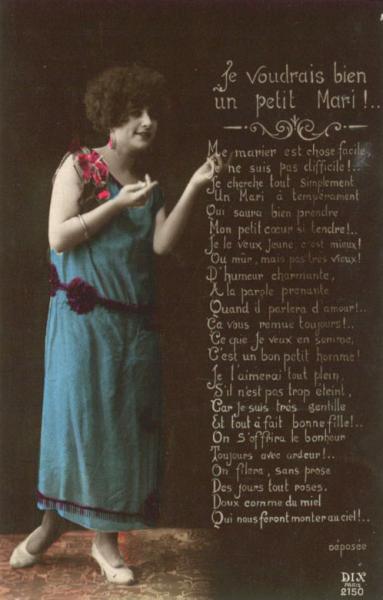 Je voudrais bien
un petit Mari !..
Me marier est chose facile,
Je ne suis pas difficile !..
Je cherche tout simplement
Un Mari à tempérament
Qui saura bien prendre
Mon petit cœur si tendre !..
Je le veux jeune, c'est mieux !
Ou mûr, mais pas très vieux !
D'humeur charmante,
A la parole prenante
Quand il parlera d'amour !..
Ca vous remue toujours !..
Ce que je veux en somme,
C'est un bon petit homme !
Je l'aimerai tout plein,
S'il n'est pas trop éteint,
Car je suis très gentille
Et tout à fait bonne fille !..
On s'offrira le bonheur
Toujours avec ardeur !..
On filera, sans prose
Des jours tout roses.
Doux comme du miel
Qui nous feront monter au ciel !..
déposée
DIX
PARIS
2150